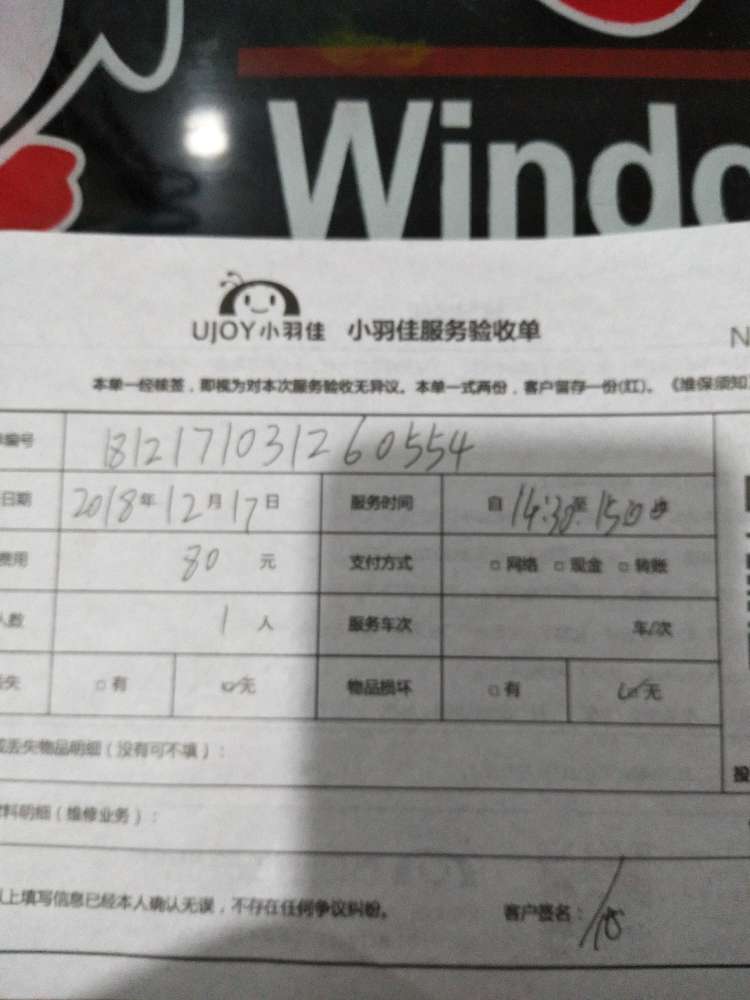 Windo
UJOY小羽佳 小羽佳服务验收单 N
本单一经核签，即视为对本次服务验收无异议。本单一式两份，客户留存一份(红)。《维保须知
编号 181217103126 0554
日期 2018年12月17日 服务时间 自14:30至15:00
费用 80 元 支付方式 □网络 □现金 □转账
人数 1 人 服务车次 车/次
失 □有 ☑无 物品损坏 □有 ☑无
或丢失物品明细（没有可不填）：
料明细（维修业务）：
上填写信息已经本人确认无误，不存在任何争议纠纷。 客户签名：